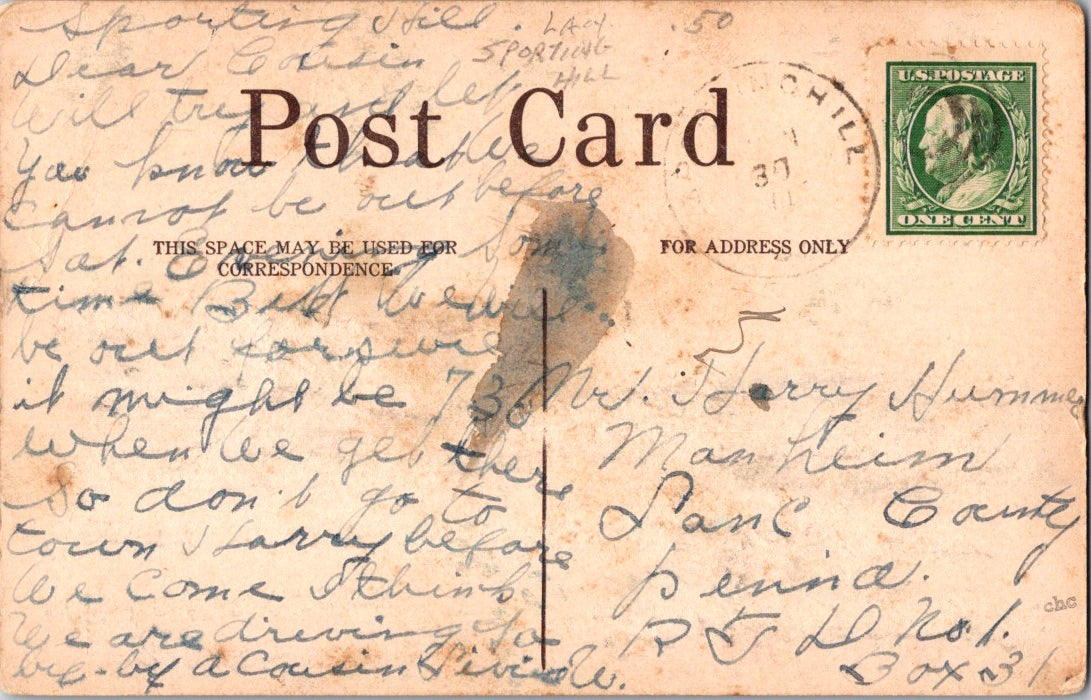 Sporting Hill.
LAN.
SPORTING
HILL
.50
Dear Cousin
Will try and let
you know that We
cannot be out before
Sat. Evening Some
time But We will
be out for sure
it might be 730
When We get there
So don't go to
town Harry before
We Come I think
We are driving So
by-by A Cousin
Post Card
THIS SPACE MAY BE USED FOR
CORRESPONDENCE.
FOR ADDRESS ONLY
HILL
30
U.S. POSTAGE
ONE CENT
Mr. Harry Hummer
Manheim
Lanc County
Penna.
R F D No. 1.
Box 31
chc